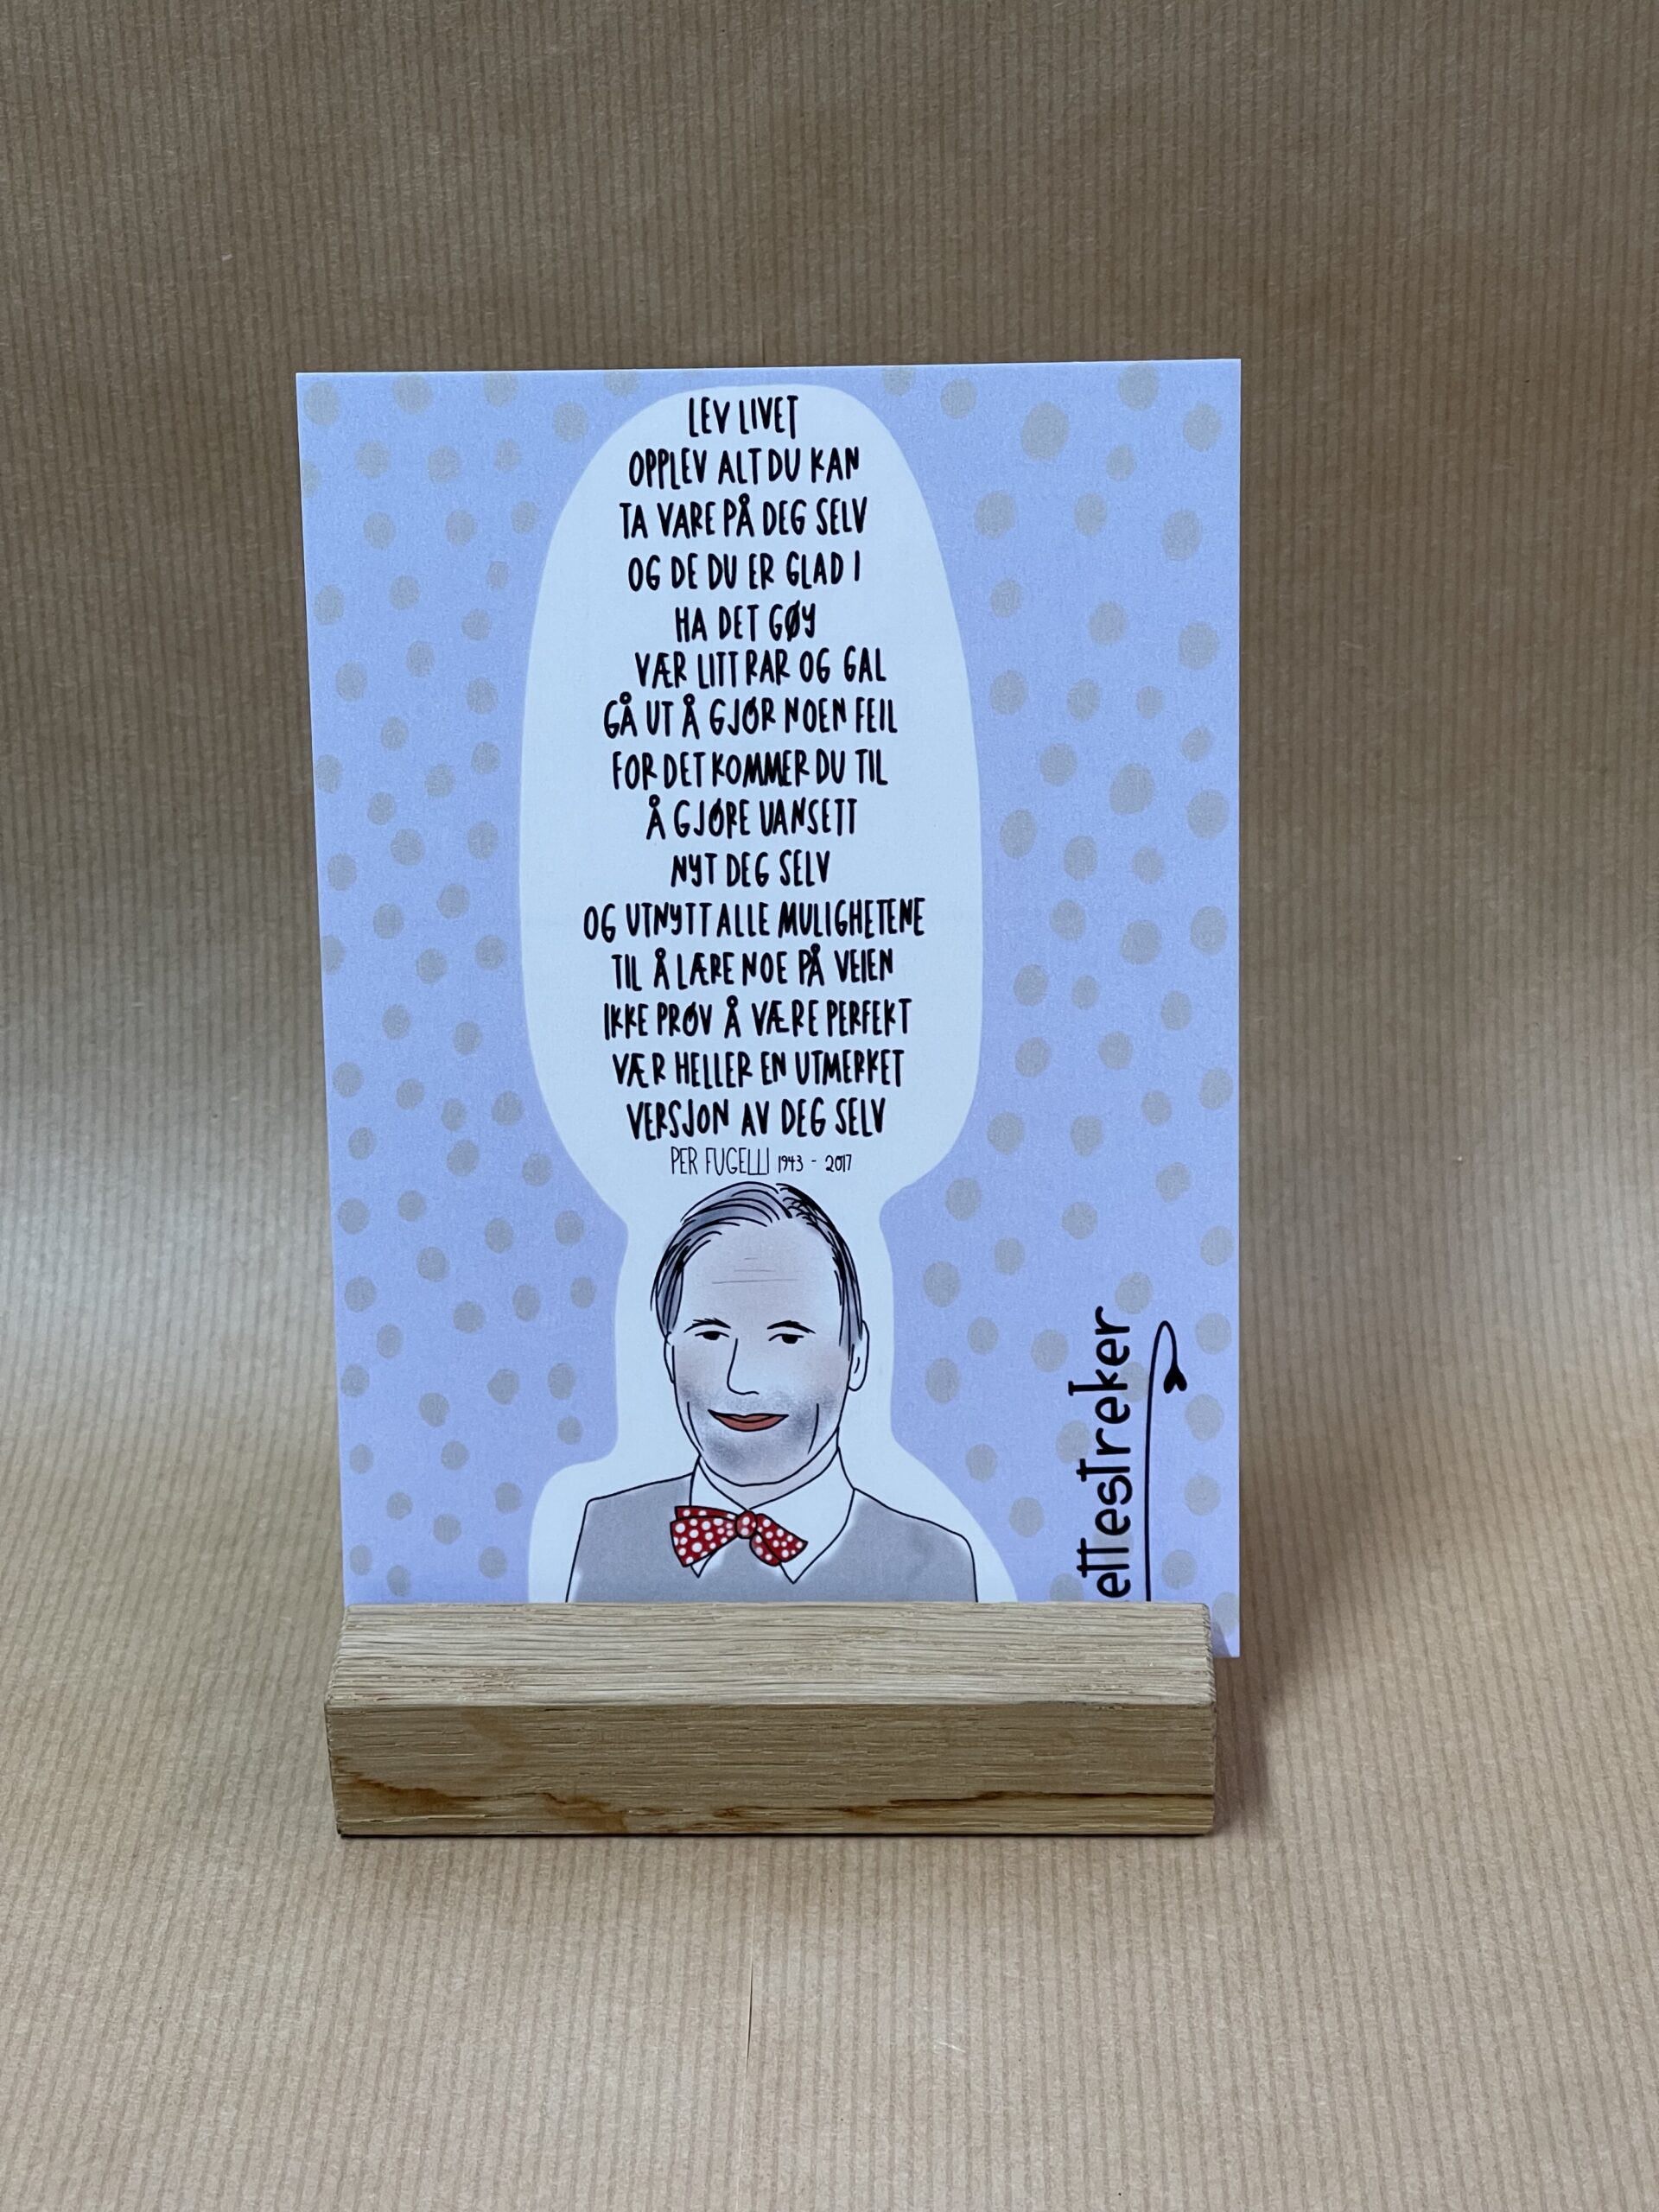 LEV LIVET
OPPLEV ALT DU KAN
TA VARE PÅ DEG SELV
OG DE DU ER GLAD I
HA DET GØY
VÆR LITT RAR OG GAL
GÅ UT Å GJØR NOEN FEIL
FOR DET KOMMER DU TIL
Å GJØRE UANSETT
NYT DEG SELV
OG UTNYTT ALLE MULIGHETENE
TIL Å LÆRE NOE PÅ VEIEN
IKKE PRØV Å VÆRE PERFEKT
VÆR HELLER EN UTMERKET
VERSJON AV DEG SELV
PER FUGELLI 1943 - 2017
ettestreker